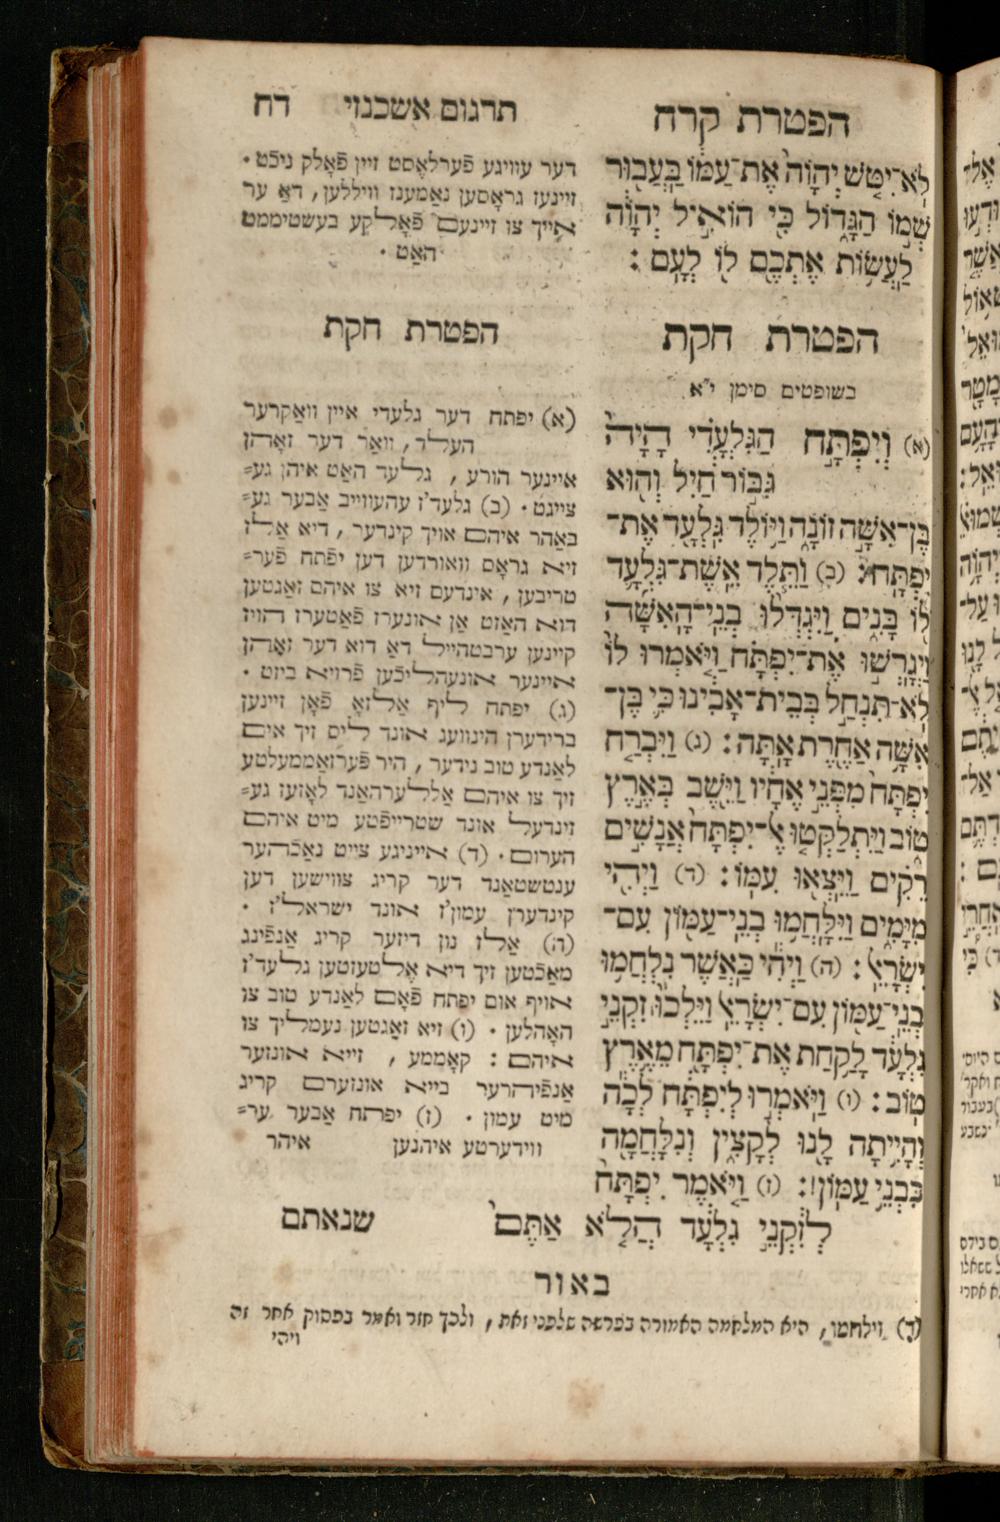 הפטרת קרח
תרגום אשכנזי
דח
לֹא־יִטֹּשׁ יְהֹוָה אֶת־עַמּוֹ בַּעֲבוּר
שְׁמוֹ הַגָּדוֹל כִּי הוֹאִיל יְהֹוָה
לַעֲשׂוֹת אֶתְכֶם לוֹ לְעָם :
הפטרת חקת
בשופטים סימן י״א
(א) וְיִפְתָּח הַגִּלְעָדִי הָיָה
גִּבּוֹר חַיִל וְהוּא
בֶּן־אִשָּׁה זוֹנָה וַיּוֹלֶד גִּלְעָד אֶת־
יִפְתָּח : (ב) וַתֵּלֶד אֵשֶׁת־גִּלְעָד
לוֹ בָּנִים וַיִּגְדְּלוּ בְנֵי־הָאִשָּׁה
וַיְגָרְשׁוּ אֶת־יִפְתָּח וַיֹּאמְרוּ לוֹ
לֹא־תִנְחַל בְּבֵית־אָבִינוּ כִּי בֶּן־
אִשָּׁה אַחֶרֶת אָתָּה : (ג) וַיִּבְרַח
יִפְתָּח מִפְּנֵי אֶחָיו וַיֵּשֶׁב בְּאֶרֶץ
טוֹב וַיִּתְלַקְּטוּ אֶל־יִפְתָּח אֲנָשִׁים
רֵקִים וַיֵּצְאוּ עִמּוֹ : (ד) וַיְהִי
מִיָּמִים וַיִּלָּחֲמוּ בְנֵי־עַמּוֹן עִם־
יִשְׂרָאֵל : (ה) וַיְהִי כַּאֲשֶׁר נִלְחֲמוּ
בְנֵי־עַמּוֹן עִם־יִשְׂרָאֵל וַיֵּלְכוּ זִקְנֵי
גִלְעָד לָקַחַת אֶת־יִפְתָּח מֵאֶרֶץ
טוֹב : (ו) וַיֹּאמְרוּ לְיִפְתָּח לְכָה
וְהָיִיתָה לָּנוּ לְקָצִין וְנִלָּחֲמָה
בִּבְנֵי עַמּוֹן : (ז) וַיֹּאמֶר יִפְתָּח
לְזִקְנֵי גִלְעָד הֲלֹא אַתֶּם
שנאתם
דער עוויגע פֿערלאָסט זיין פֿאָלק ניכֿט .
זיינעז גראָסען נאַמענז וויללען , דאַ ער
אייך צו זיינעם פֿאָלקע בעשטיממט
האַט .
הפטרת חקת
(א) יפתח דער גלעדי איין וואַקרער
העלד , וואַר דער זאָהן
איינער הורע , גלעד האַט איהן גע=
צייגט . (ב) גלעד'ז עהעווייב אַבער גע=
באַהר איהם אויך קינדער , דיא אַלז
זיא גראָס וואורדען דען יפתח פֿער=
טריבען , אינדעם זיא צו איהם זאַגטען
דוא האַזט אַן אונזערז פֿאַטערז הויז
קיינען ערבטהייל דאַ דוא דער זאָהן
איינער אונעהליכֿען פֿרויא ביזט .
(ג) יפתח ליף אַלזאָ פֿאָן זיינען
ברידערן הינוועג אונד ליס זיך אים
לאַנדע טוב נידער , היר פֿערזאַממעלטע
זיך צו איהם אַללערהאַנד לאָזעז גע=
זינדעל אונד שטרייפֿטע מיט איהם
הערום . (ד) אייניגע צייט נאַכֿהער
ענטשטאַנד דער קריג צווישען דען
קינדערן עמון'ז אונד ישראל'ז .
(ה) אַלז נון דיזער קריג אַנפֿינג
מאַכֿטען זיך דיא אֶלטעזטען גלעד'ז
אויף אום יפתח פֿאָם לאַנדע טוב צו
האָהלען . (ו) זיא זאַגטען נעמליך צו
איהם : קאָממע , זייא אונזער
אַנפֿיהרער בייא אונזערם קריג
מיט עמון . (ז) יפתח אַבער ער=
ווידערטע איהנען
איהר
באור
(ד) וילחמו , היא המלחמה האמורה בפרשה שלפני זאת , ולכך חזר ואמר בפסוק אחר זה
ויהי